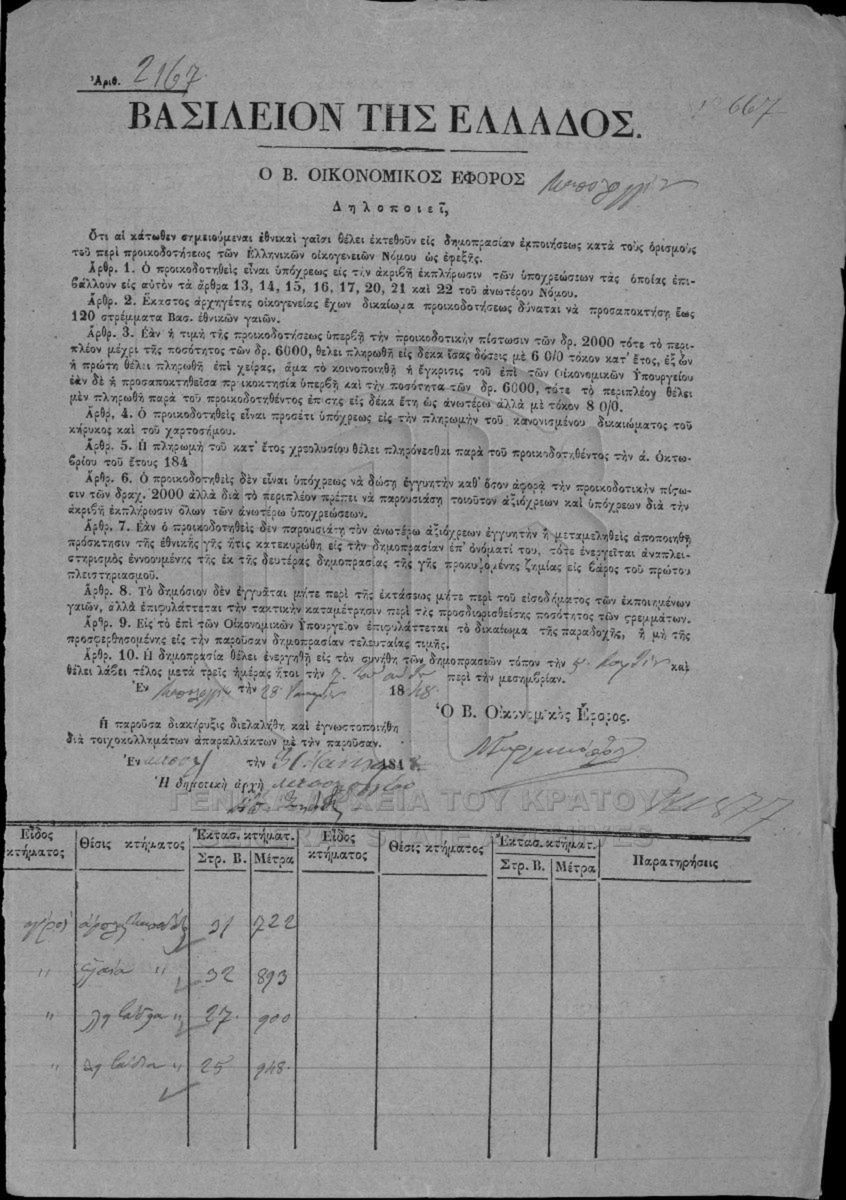 Ἀριθ. 2167
667
ΒΑΣΙΛΕΙΟΝ ΤΗΣ ΕΛΛΑΔΟΣ.
Ο Β. ΟΙΚΟΝΟΜΙΚΟΣ ΕΦΟΡΟΣ
Δηλοποιεῖ,
Ὅτι αἱ κάτωθεν σημειούμεναι ἐθνικαὶ γαῖαι θέλει ἐκτεθοῦν εἰς δημοπρασίαν ἐκποιήσεως κατὰ τοὺς ὁρισμοὺς
τοῦ περὶ προικοδοτήσεως τῶν Ἑλληνικῶν οἰκογενειῶν Νόμου ὡς ἐφεξῆς.
Ἄρθρ. 1. Ὁ προικοδοτηθεὶς εἶναι ὑπόχρεως εἰς τὴν ἀκριβῆ ἐκπλήρωσιν τῶν ὑποχρεώσεων τὰς ὁποίας ἐπι-
βάλλουν εἰς αὐτὸν τὰ ἄρθρα 13, 14, 15, 16, 17, 20, 21 καὶ 22 τοῦ ἀνωτέρω Νόμου.
Ἄρθρ. 2. Ἕκαστος ἀρχηγέτης οἰκογενείας ἔχων δικαίωμα προικοδοτήσεως δύναται νὰ προσαποκτήσῃ ἕως
120 στρέμματα Βασ. ἐθνικῶν γαιῶν.
Ἄρθρ. 3. Ἐὰν ἡ τιμὴ τῆς προικοδοτήσεως ὑπερβῇ τὴν προικοδοτικὴν πίστωσιν τῶν δρ. 2000 τότε τὸ περι-
πλέον μέχρι τῆς ποσότητος τῶν δρ. 6000, θέλει πληρωθῆ εἰς δέκα ἴσας δόσεις μὲ 6 0/0 τόκον κατ' ἔτος, ἐξ ὧν
ἡ πρώτη θέλει πληρωθῆ ἐπὶ χεῖρας, ἅμα τὸ κοινοποιηθῆ ἡ ἔγκρισις τοῦ ἐπὶ τῶν Οἰκονομικῶν Ὑπουργείου
ἐὰν δὲ ἡ προσαποκτηθεῖσα πρ ικοκτησία ὑπερβῇ καὶ τὴν ποσότητα τῶν δρ. 6000, τότε τὸ περιπλέον θέλει
μὲν πληρωθῆ παρὰ τοῦ προικοδοτηθέντος ἐπίσης εἰς δέκα ἔτη ὡς ἀνωτέρω ἀλλὰ μὲ τόκον 8 0/0.
Ἄρθρ, 4. Ὁ προικοδοτηθεὶς εἶναι προσέτι ὑπόχρεως εἰς τὴν πληρωμὴν τοῦ κανονισμένου δικαιώματος τοῦ
κήρυκος καὶ τοῦ χαρτοσήμου.
Ἄρθρ. 5. Ἡ πληρωμὴ τοῦ κατ' ἔτος χρεολυσίου θέλει πληρόνεσθαι παρὰ τοῦ προικοδοτηθέντος τὴν ά. Ὀκτω-
βρίου τοῦ ἔτους 184
Ἄρθρ. 6. Ὁ προικοδοτηθεὶς δὲν εἶναι ὑπόχρεως νὰ δώσῃ ἐγγυητὴν καθ' ὅσον ἀφορᾷ τὴν προικοδοτικὴν πίστω-
σιν τῶν δραχ. 2000 ἀλλὰ διὰ τὸ περιπλέον πρέπει νὰ παρουσιάσῃ τοιοῦτον ἀξιόχρεων καὶ ὑπόχρεων διὰ τὴν
ἀκριβῆ ἐκπλήρωσιν ὅλων τῶν ἀνωτέρω ὑποχρεώσεων.
Ἄρθρ. 7. Ἐὰν ὁ προικοδοτηθεὶς δὲν παρουσιάσῃ τὸν ἀνωτέρω ἀξιόχρεων ἐγγυητὴν ἢ μεταμεληθεὶς ἀποποιηθῇ
πρόσκτησιν τῆς ἐθνικῆς γῆς ἥτις κατεκυρώθη εἰς τὴν δημοπρασίαν ἐπ' ὀνόματί του, τότε ἐνεργεῖται ἀναπλει-
στηρισμὸς ἐννοουμένης τῆς ἐκ τῆς δευτέρας δημοπρασίας τῆς γῆς προκυψομένης ζημίας εἰς βάρος τοῦ πρώτου
πλειστηριασμοῦ.
Ἄρθρ. 8. Τὸ δημόσιον δὲν ἐγγυᾶται μήτε περὶ τῆς ἐκτάσεως μήτε περὶ τοῦ εἰσοδήματος τῶν ἐκποιημένων
γαιῶν, ἀλλὰ ἐπιφυλάττεται τὴν τακτικὴν καταμέτρησιν περὶ τῆς προσδιορισθείσης ποσότητος τῶν στρεμμάτων.
Ἄρθρ. 9. Εἰς τὸ ἐπὶ τῶν Οἰκονομικῶν Ὑπουργεῖον ἐπιφυλάττεται τὸ δικαίωμα τῆς παραδοχῆς, ἢ μὴ τῆς
προσφερθησομένης εἰς τὴν παροῦσαν δημοπρασίαν τελευταίας τιμῆς.
Ἄρθρ. 10. Ἡ δημοπρασία θέλει ἐνεργηθῆ εἰς τὸν συνήθη τῶν δημοπρασιῶν τόπον τὴν καὶ
θέλει λάβει τέλος μετὰ τρεῖς ἡμέρας ἤτοι τὴν 7 περὶ τὴν μεσημβρίαν.
Ἐν τὴν 28 1848
Ὁ Β. Οἰκονομικὸς Ἔφορος.
Ἡ παροῦσα διακήρυξις διελαλήθη καὶ ἐγνωστοποιήθη
διὰ τοιχοκολλημάτων ἀπαραλλάκτων μὲ τὴν παροῦσαν.
Ἐν τὴν 31 184
Ἡ δημοτικὴ ἀρχὴ
ΓΕΝΙΚΑ ΑΡΧΕΙΑ ΤΟΥ ΚΡΑΤΟΥΣ
Εἶδος κτήματος Θέσις κτήματος Ἔκτασ. κτήματ. Εἶδος κτήματος Θέσις κτήματος Ἔκτασ. κτήματ. Παρατηρήσεις
Στρ. Β. Μέτρα Στρ. Β. Μέτρα
31 722
" " 32 893
" " 27 900
" " 25 948